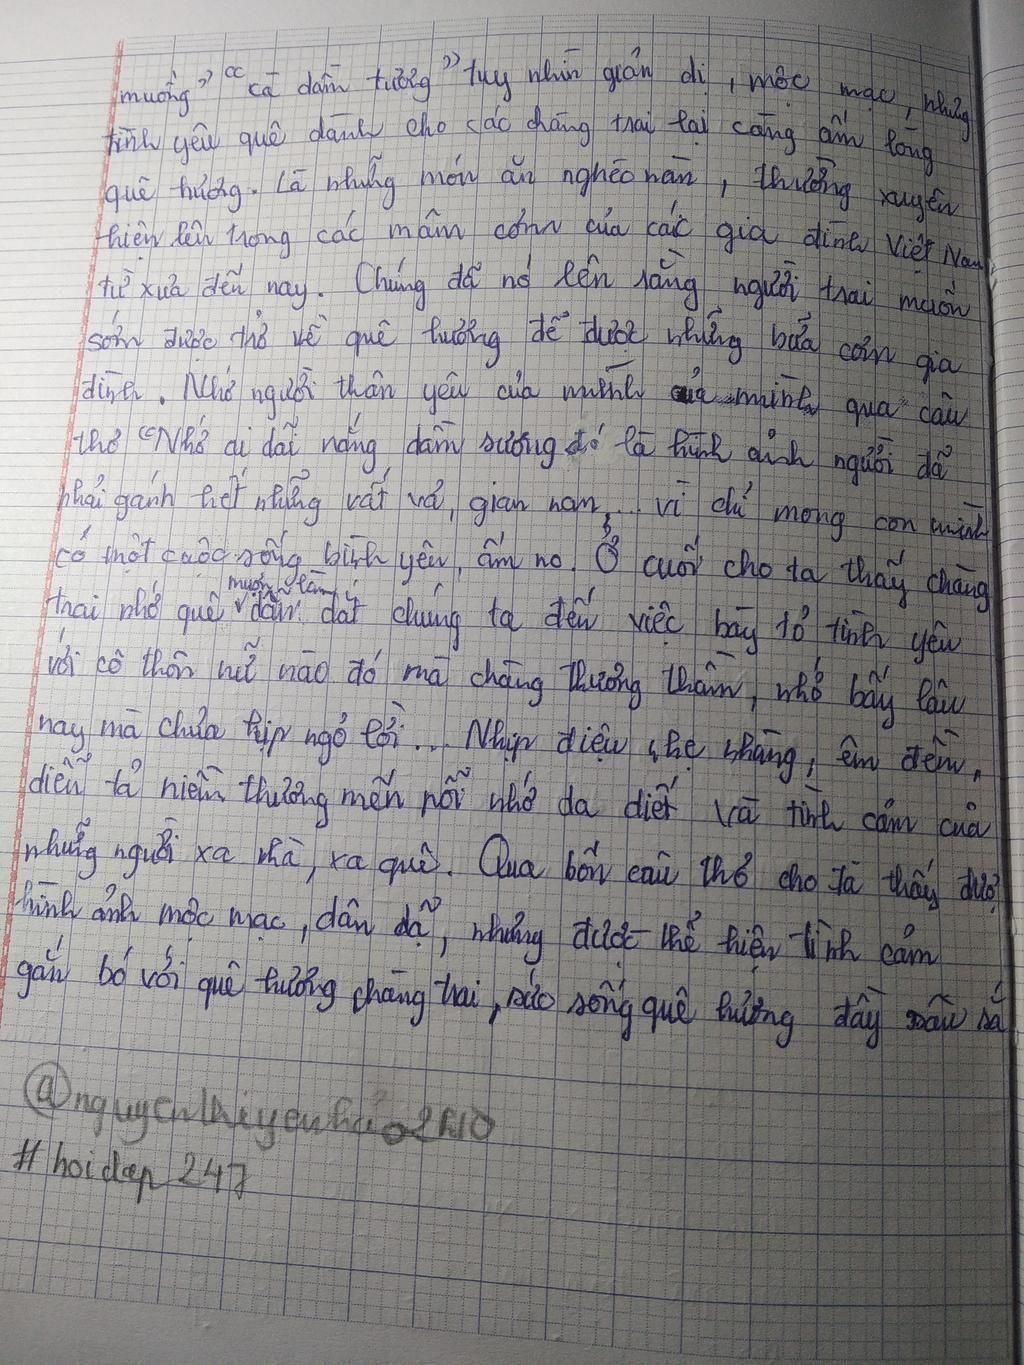 muống" "cà dầm tương" tuy nhìn giản dị, mộc mạc, nhưng
tình yêu quê dành cho các chàng trai lại càng ấm lòng
quê hương. Là những món ăn nghèo nàn, thường xuyên
hiện lên trong các mâm cơm của các gia đình Việt Nam
từ xưa đến nay. Chúng đã nó lên rằng người trai muốn
sớm được thở về quê hương để được những bữa cơm gia
đình. Nhớ người thân yêu của mình của mình qua câu
thơ "Nhớ ai dãi nắng dầm sương đó là hình ảnh người đã
phải gánh hết những vất vả, gian nan,... vì chỉ mong con mình
có một cuộc sống bình yên, ấm no. Ở cuối cho ta thấy chàng
muốn làm
trai nhớ quê dẫn dắt chúng ta đến việc bày tỏ tình yêu
với cô thôn nữ nào đó mà chàng thương thầm, nhớ bấy lâu
nay mà chưa kịp ngỏ lời... Nhịp điệu nhẹ nhàng, êm đềm,
diễn tả niềm thương mến nỗi nhớ da diết và tình cảm của
những người xa nhà, xa quê. Qua bốn câu thơ cho ta thấy đượ
hình ảnh mộc mạc, dân dã, nhưng được thể hiện tình cảm
gắn bó với quê hương chàng trai, sức sống quê hương đầy sâu sắ
#hoidap247